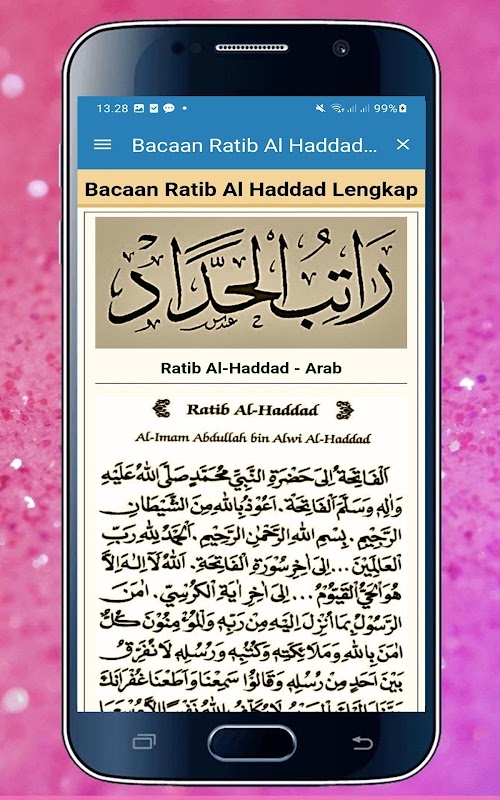 13.28
99%
Bacaan Ratib Al Haddad...
Bacaan Ratib Al Haddad Lengkap
رَاتِبُ الْحَدَّادْ
Ratib Al-Haddad - Arab
Ratib Al-Haddad
Al-Imam Abdullah bin Alwi Al-Haddad
اَلْفَاتِحَةُ اِلَى حَضْرَةِ النَّبِيِّ مُحَمَّدٍ صَلَّى اللهُ عَلَيْهِ
وَاٰلِهِ وَسَلَّمَ اَلْفَاتِحَةْ. اَعُوْذُ بِاللهِ مِنَ الشَّيْطَانِ
الرَّجِيْمِ. بِسْمِ اللهِ الرَّحْمٰنِ الرَّحِيْمِ. اَلْحَمْدُ لِلّٰهِ رَبِّ
الْعَالَمِيْنَ... اِلَى اٰخِرِ سُوْرَةِ الْفَاتِحَةِ. اَللهُ لَا اِلٰهَ اِلَّا
هُوَ الْحَيُّ الْقَيُّوْمُ... اِلَى اٰخِرِ اٰيَةِ الْكُرْسِيِّ. اٰمَنَ
الرَّسُوْلُ بِمَا اُنْزِلَ اِلَيْهِ مِنْ رَبِّهِ وَالْمُؤْمِنُوْنَ كُلٌّ
اٰمَنَ بِاللهِ وَمَلَائِكَتِهِ وَكُتُبِهِ وَرُسُلِهِ لَا نُفَرِّقُ
بَيْنَ اَحَدٍ مِنْ رُسُلِهِ وَقَالُوْا سَمِعْنَا وَاَطَعْنَا غُفْرَانَكَ